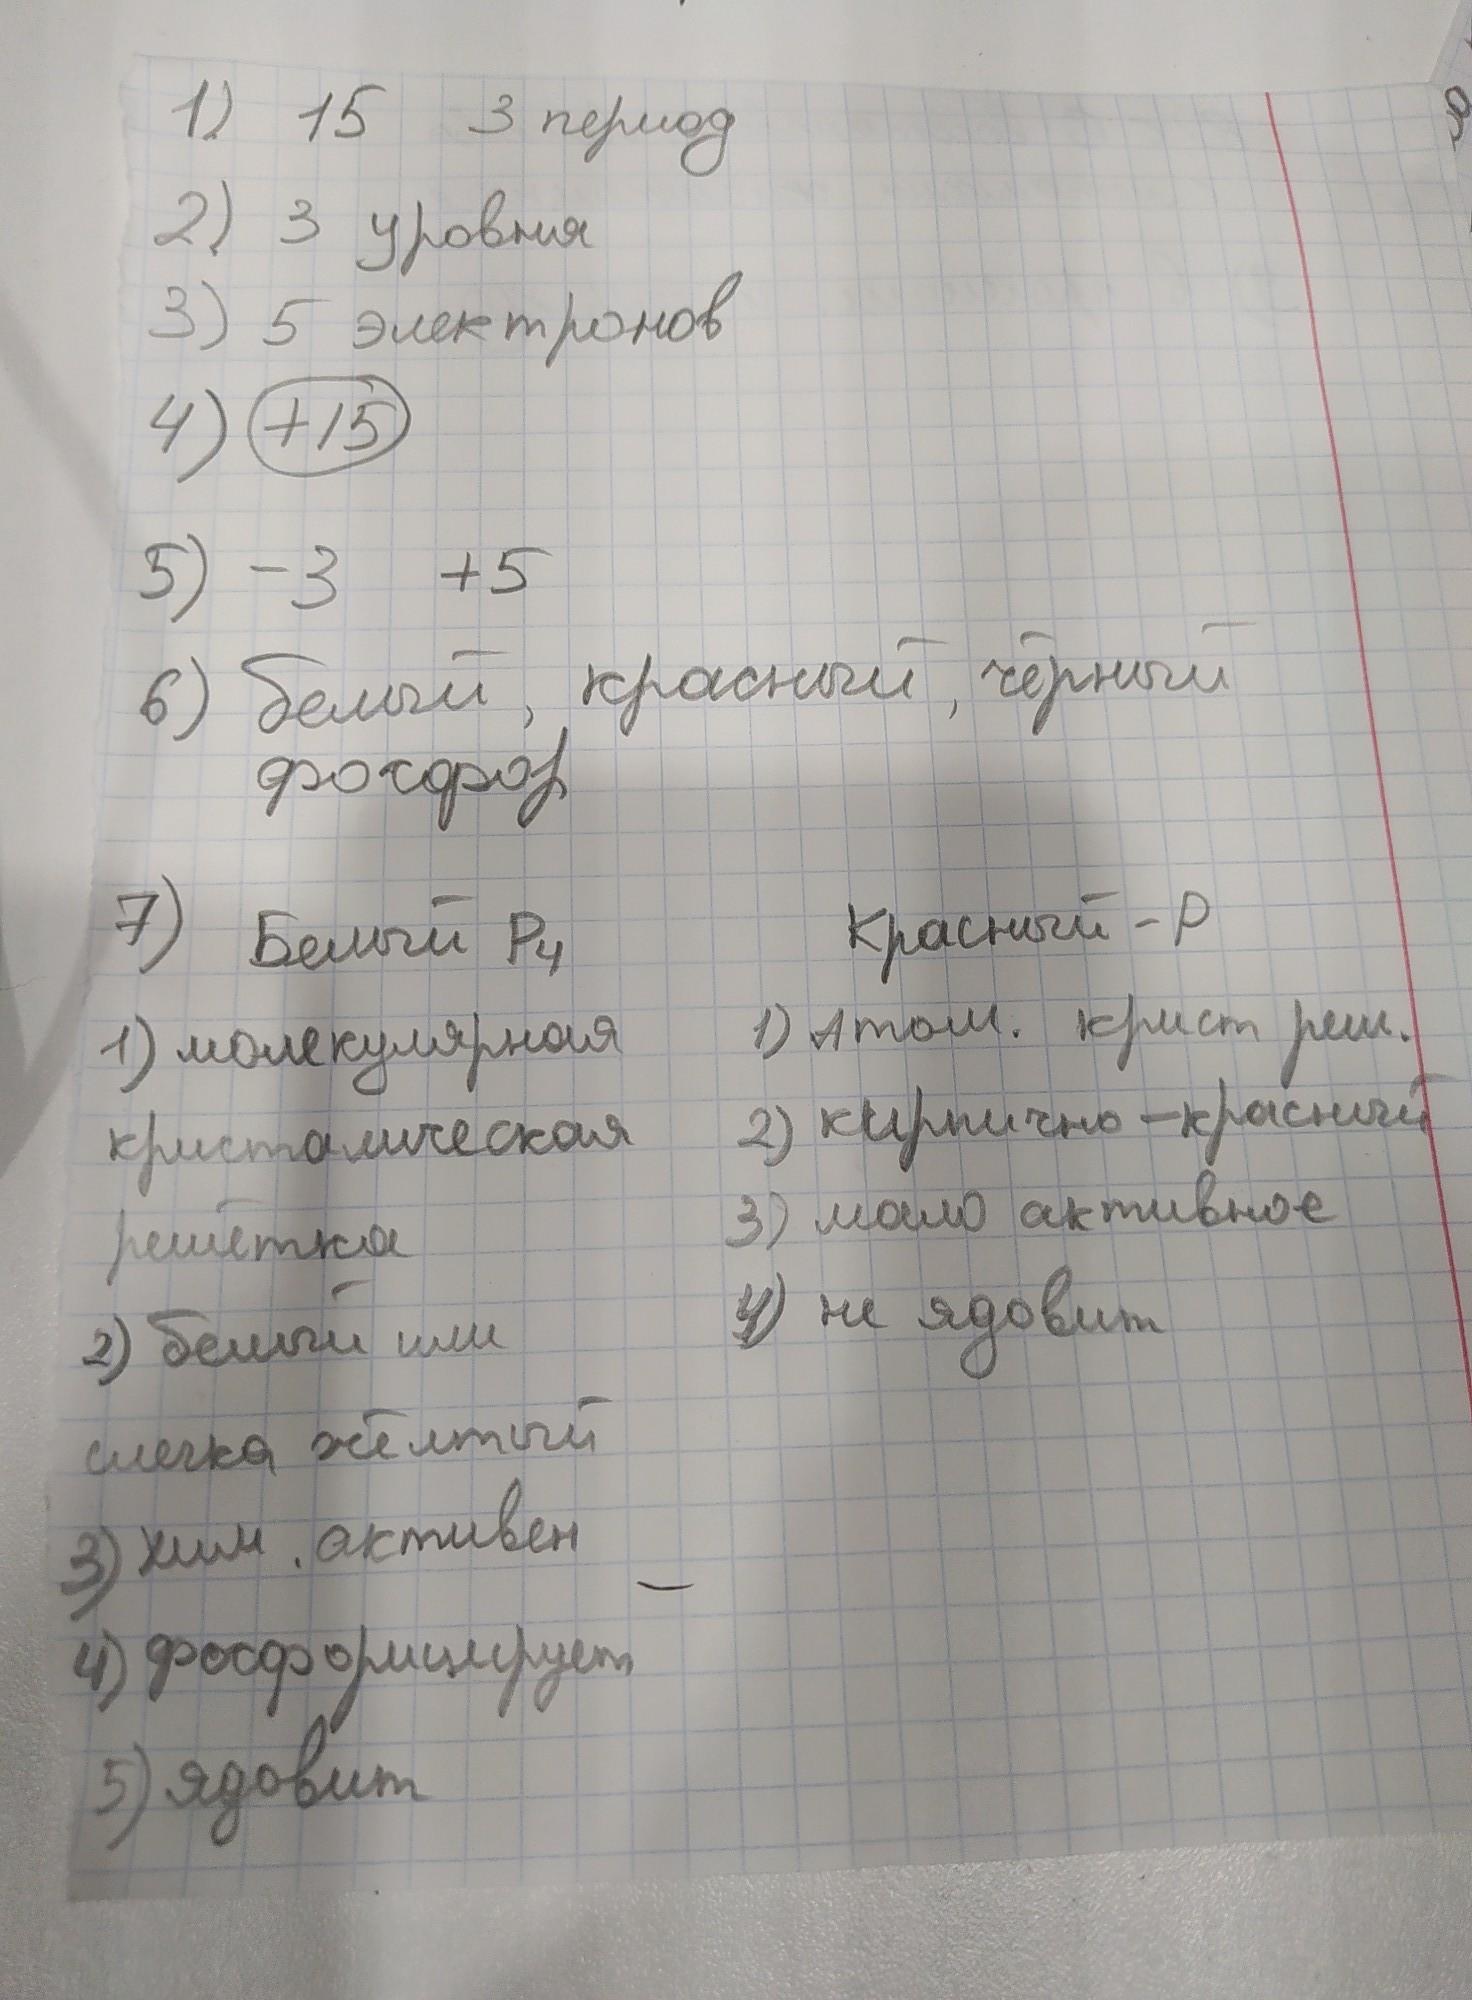 1) 15 3 период
2) 3 уровня
3) 5 электронов
4) +15
5) -3 +5
6) белый, красный, чёрный
фосфор
7) Белый P4
1) молекулярная
кристалическая
решётка
2) белый или
слегка жёлтый
3) хим. активен
4) фосфорицирует
5) ядовит
Красный - P
1) Атом. крист реш.
2) кирпично-красный
3) мало активное
4) не ядовит